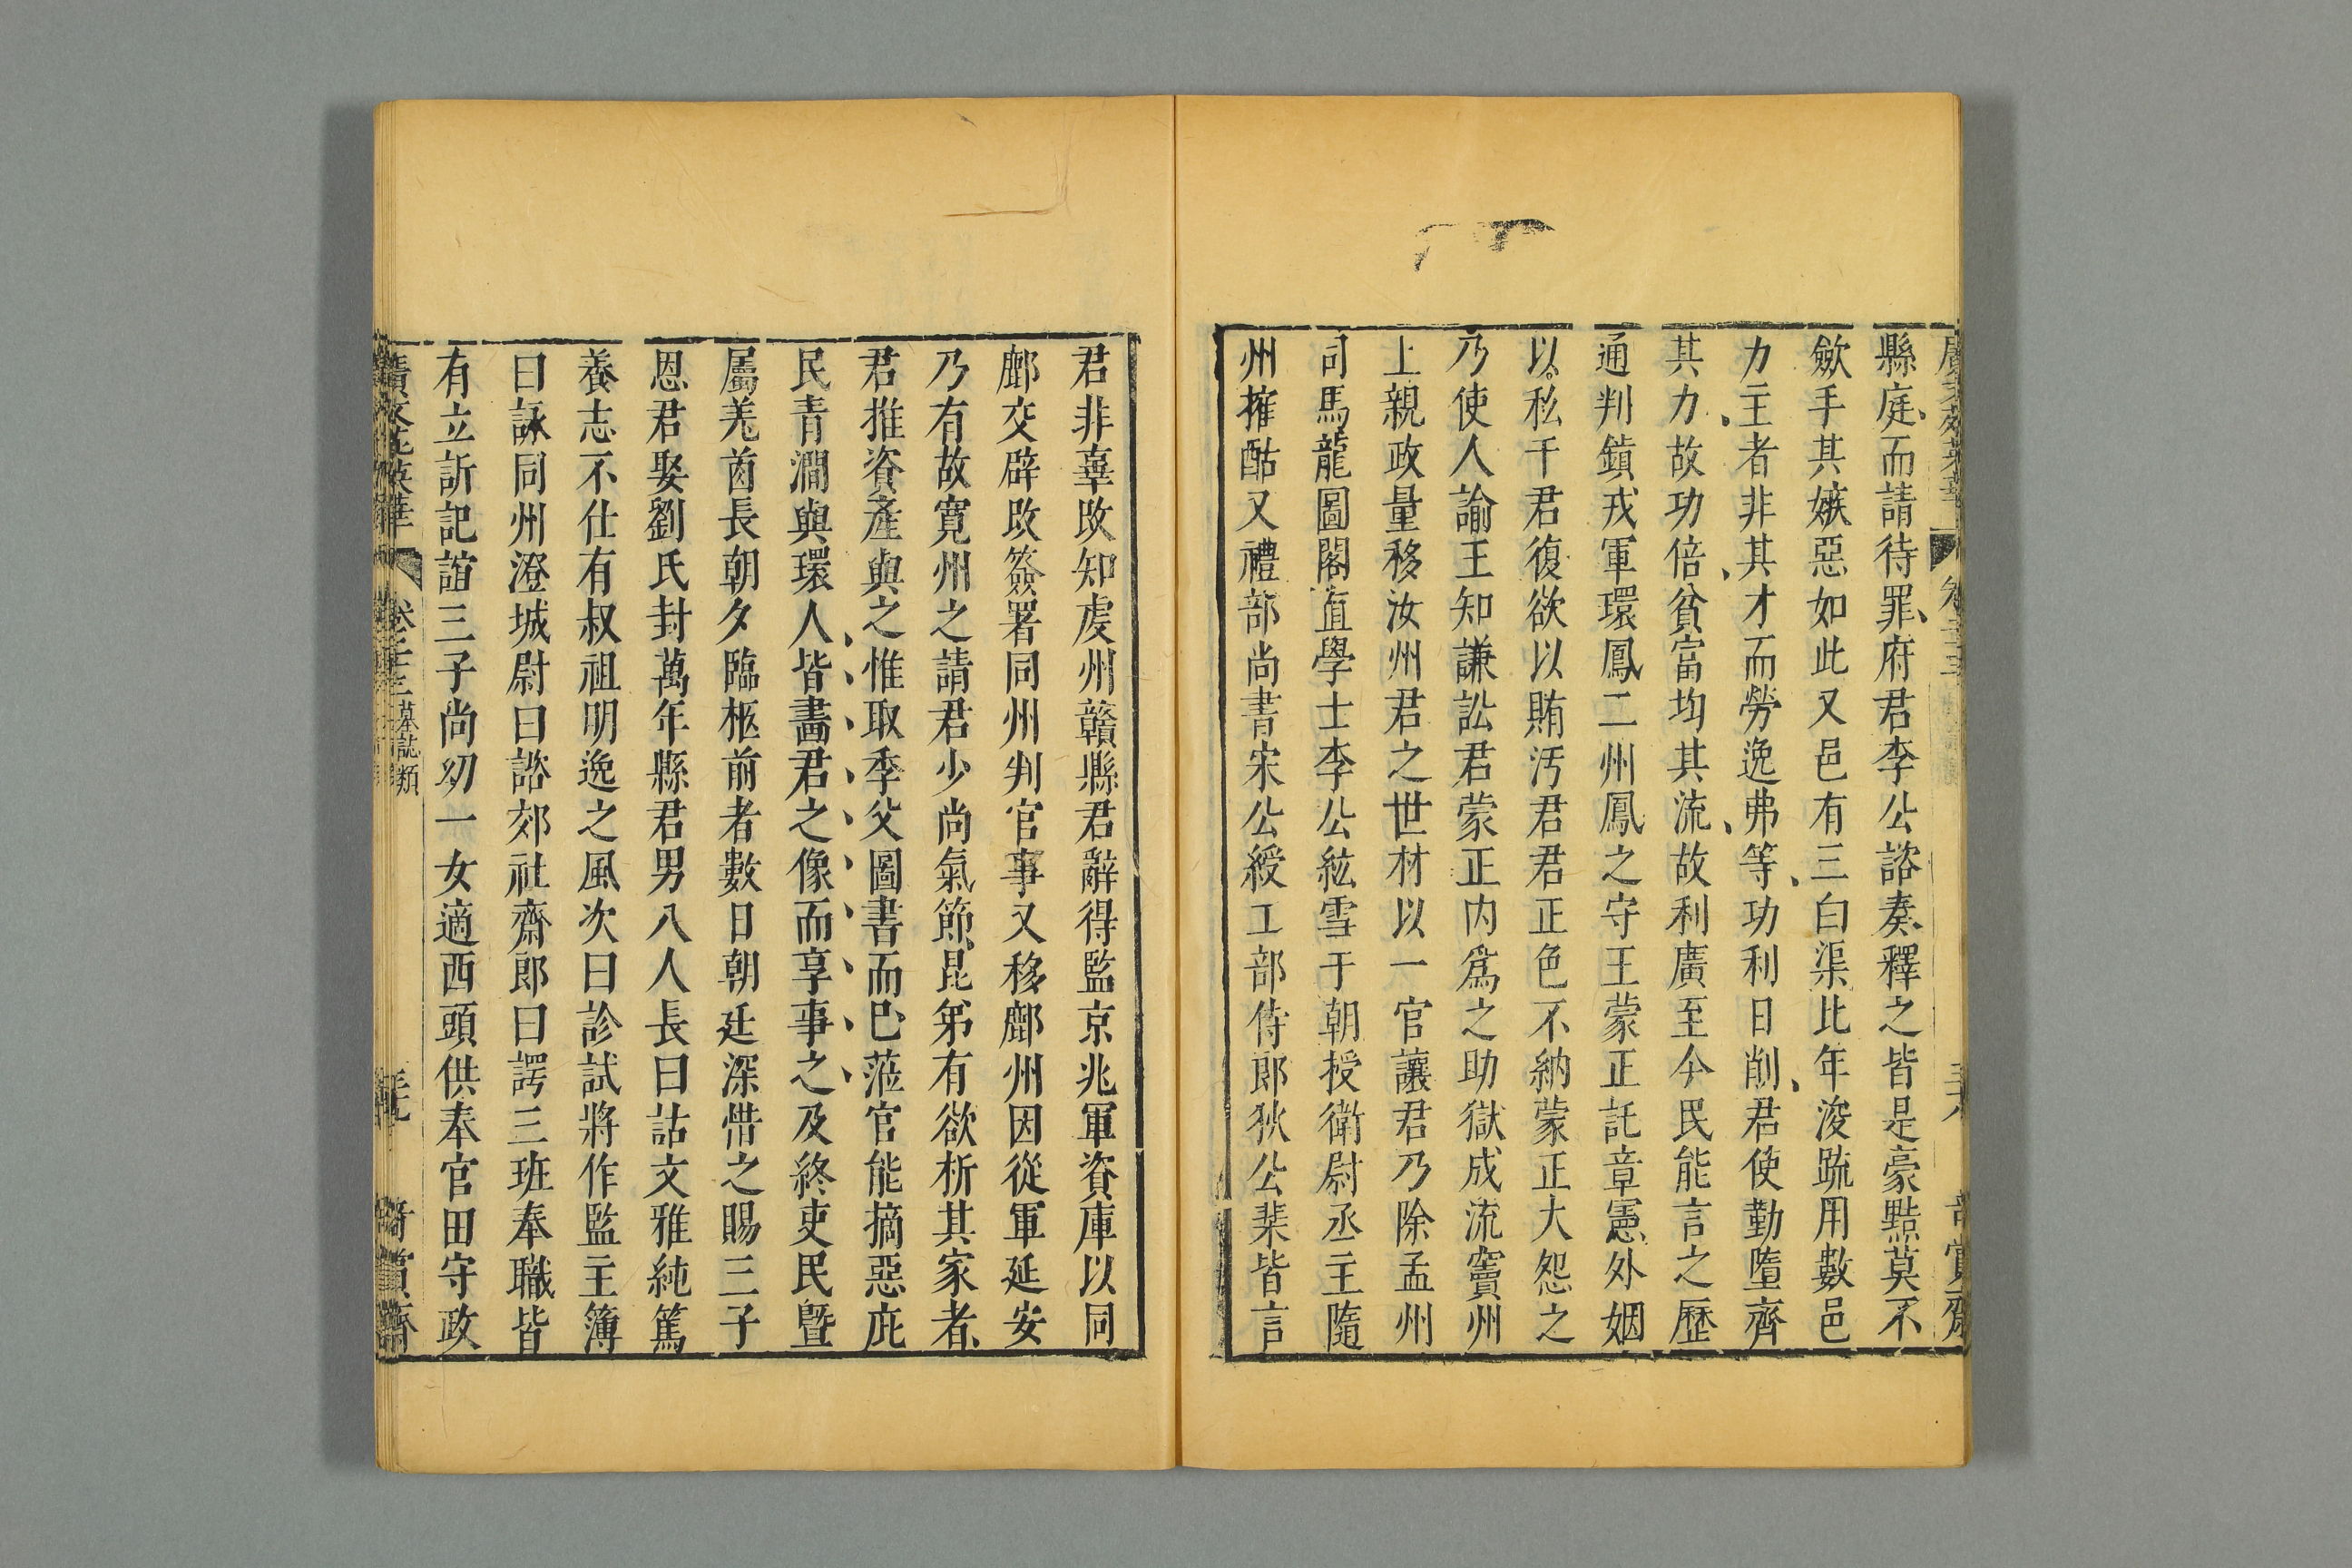 縣庭而請待罪府君李公諮奏釋之皆是豪黠莫不
歛手其嫉惡如此又邑有三白渠比年浚䟽用數邑
力主者非其才而勞逸弗等功利日削君使勤墮齊
其力故功倍貧富均其流故利廣至今民能言之歷
通判鎮戎軍環鳳二州鳳之守王蒙正託章憲外姻
以私干君復欲以賄汚君君正色不納蒙正大怨之
乃使人諭王知謙訟君蒙正内爲之助獄成流竇州
上親政量移汝州君之世材以一官讓君乃除孟州
司馬龍圖閣直學士李公紘雪于朝授衛尉丞主隨
州搉酤又禮部尚書宋公綬工部侍郎狄公棐皆言
君非辜改知虔州贛縣君辭得監京兆軍資庫以同
鄜交辟改簽署同州判官事又移鄜州因從軍延安
乃有故寛州之請君少尚氣節昆弟有欲析其家者
君推資產與之惟取季父圖書而巳蒞官能摘惡庇
民青澗與環人皆畵君之像而享事之及終吏民曁
屬羌酋長朝夕臨柩前者數日朝廷深惜之賜三子
恩君娶劉氏封萬年縣君男八人長曰詁文雅純篤
養志不仕有叔祖明逸之風次曰診試將作監主簿
曰詠同州澄城尉曰諮郊社齋郎曰諤三班奉職皆
有立訢記誼三子尚幼一女適西頭供奉官田守政
廣文苑英華 卷 墓誌類 竒賞齋